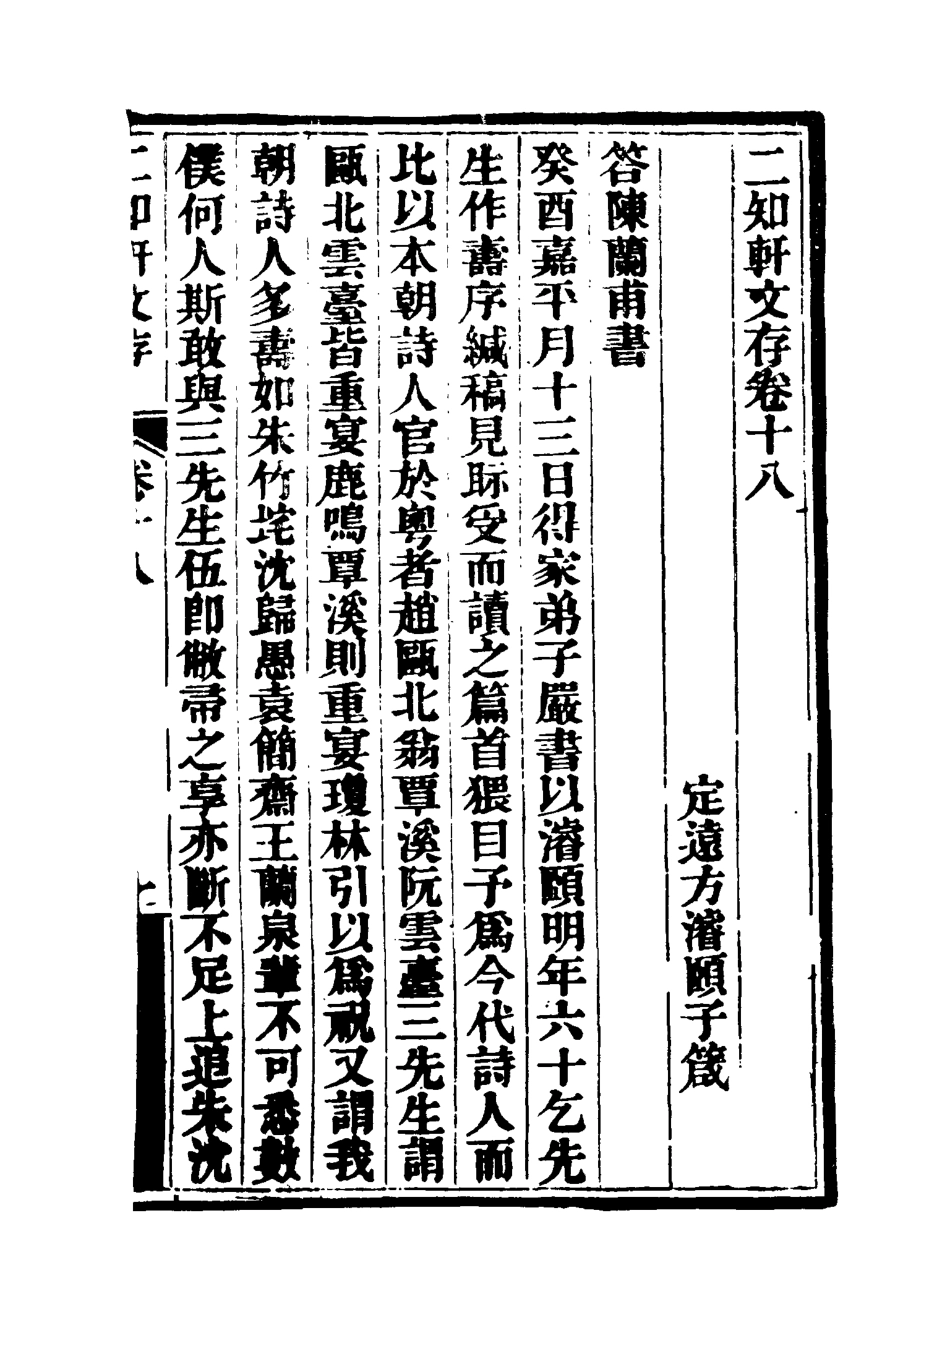 二知軒文存卷十八
定遠方濬頤子箴
答陳蘭甫書
癸酉嘉平月十三日得家弟子嚴書以濬頤明年六十乞先
生作壽序緘稿見眎受而讀之篇首猥目予爲今代詩人而
比以本朝詩人官於粵者趙甌北翁覃溪阮雲臺三先生謂
甌北雲臺皆重宴鹿鳴覃溪則重宴瓊林引以爲祝又謂我
朝詩人多壽如朱竹垞沈歸愚袁簡齋王蘭泉輩不可悉數
僕何人斯敢與三先生伍卽敝帚之享亦斷不足上追朱沈
二知軒文存 卷十八 一